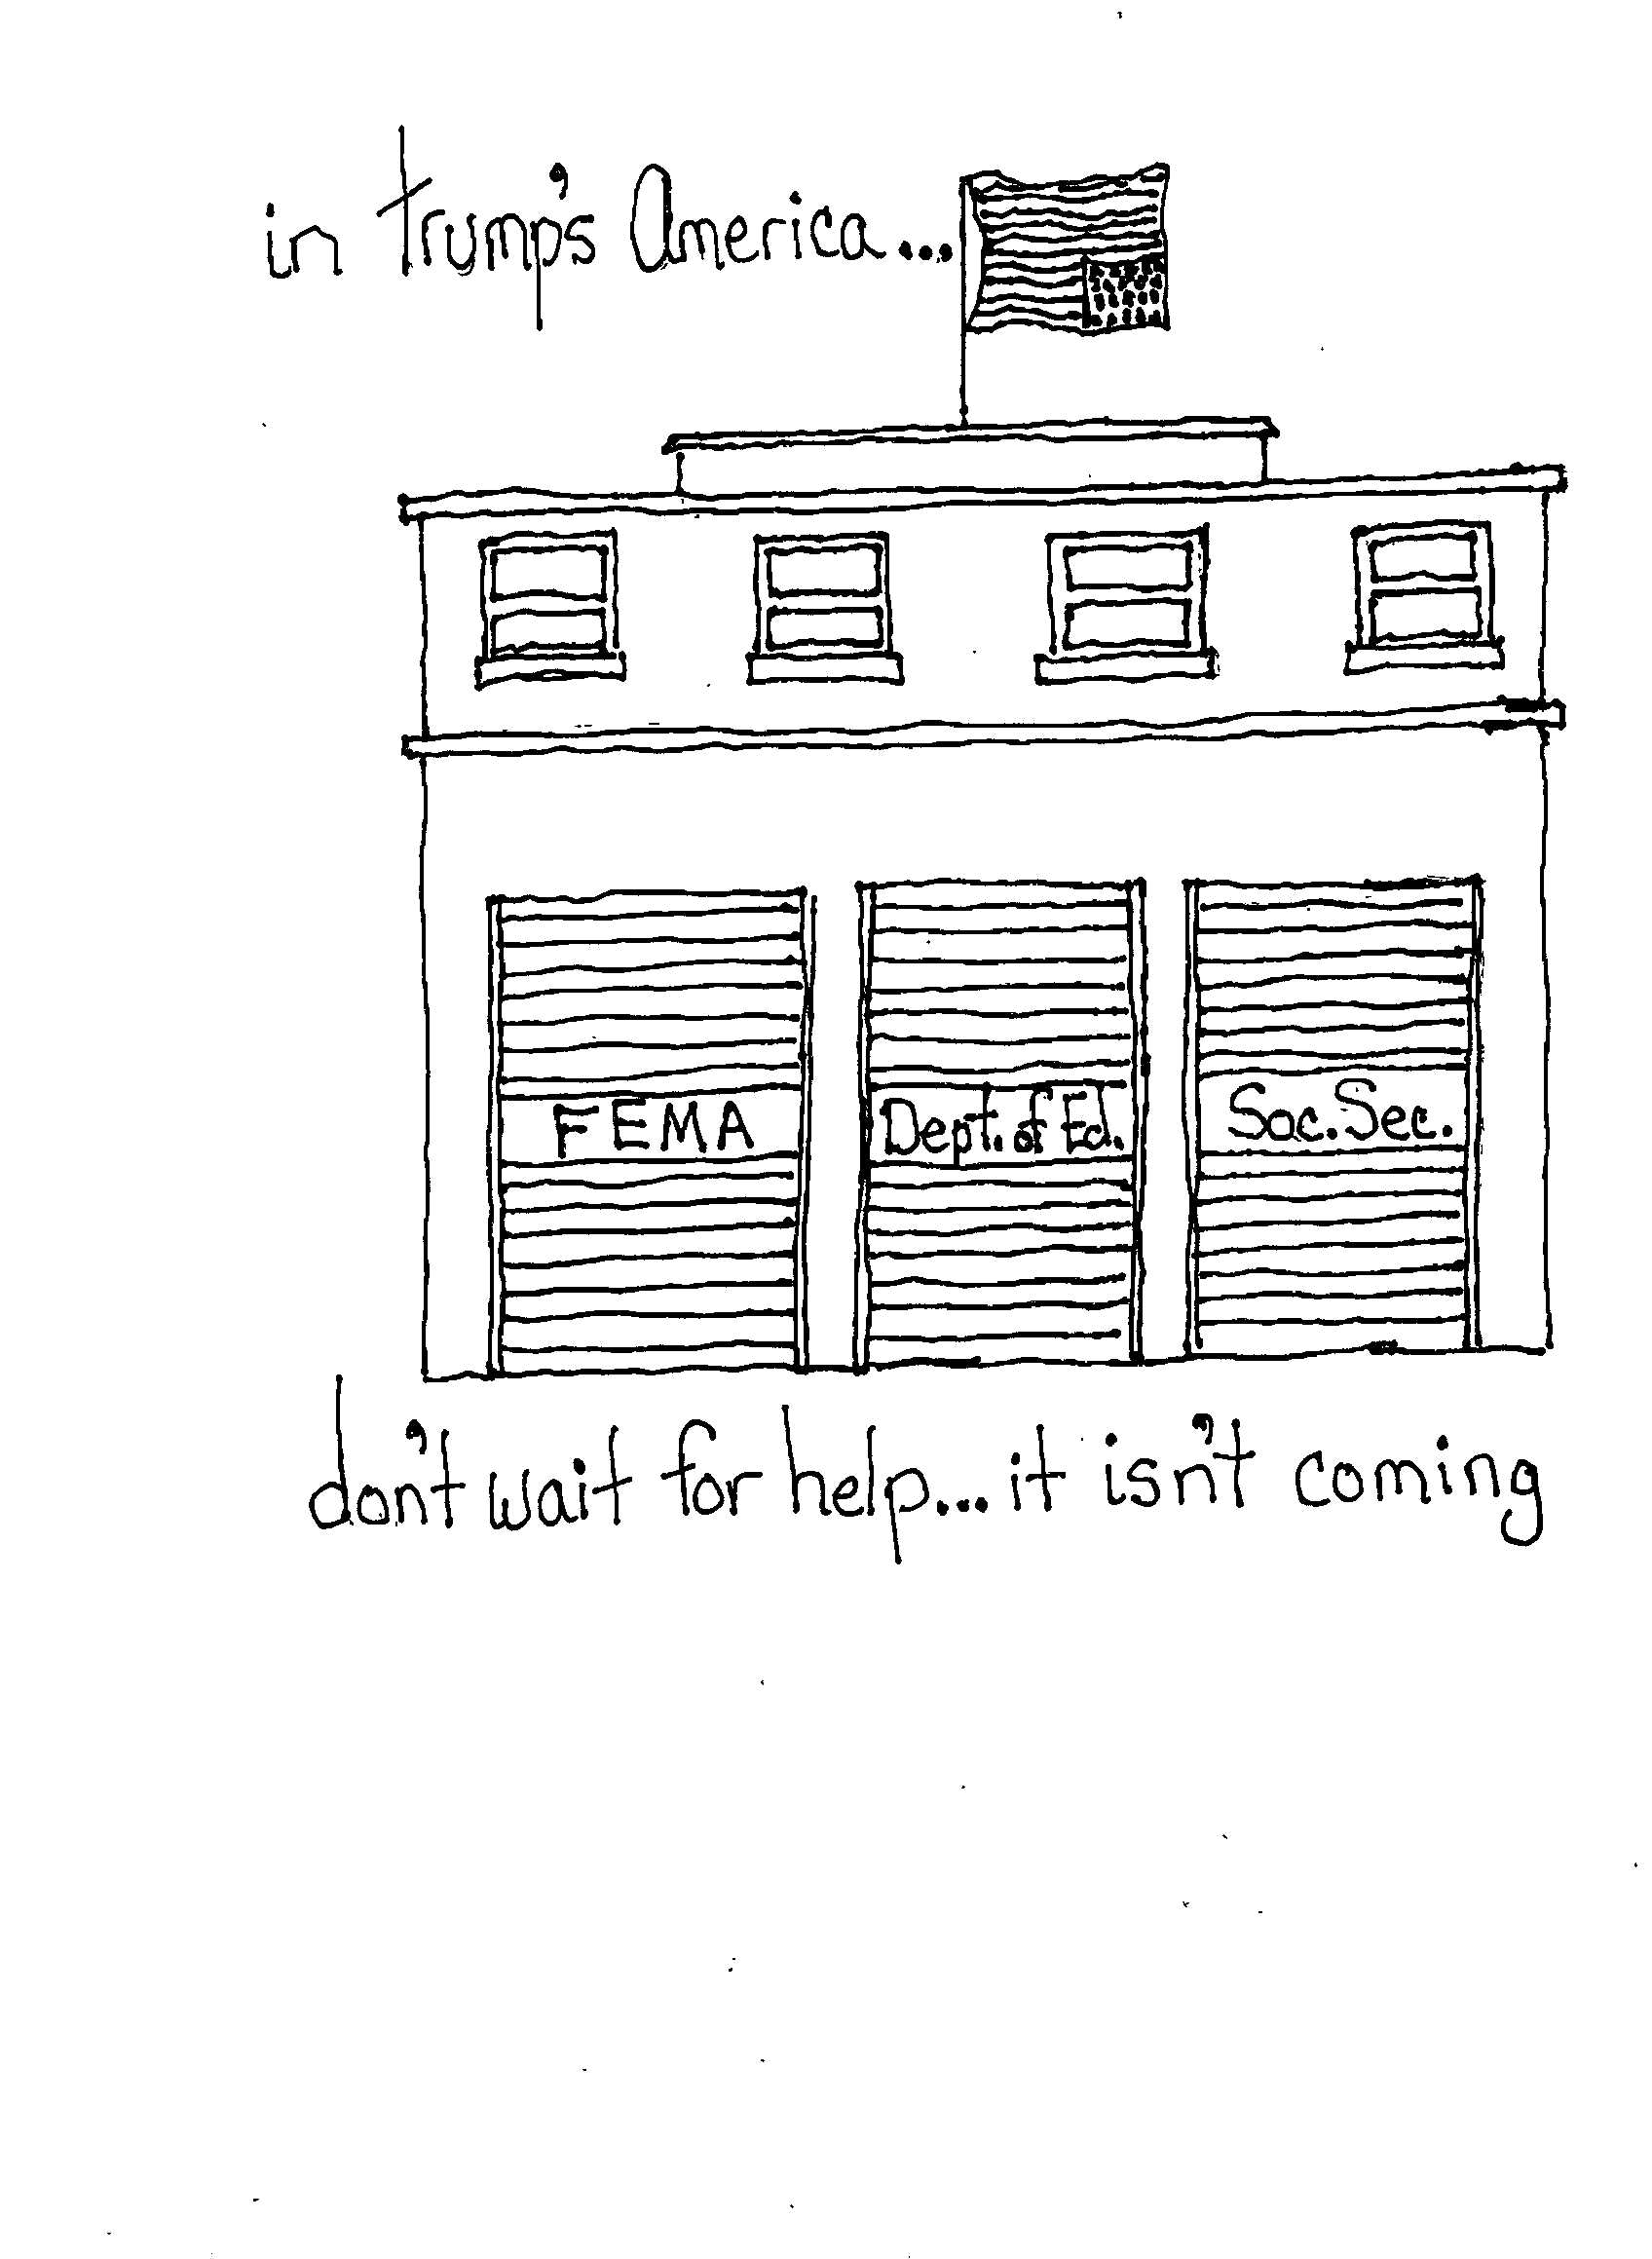 in trump's America...
FEMA
Dept. of Ed.
Soc. Sec.
don't wait for help... it isn't coming